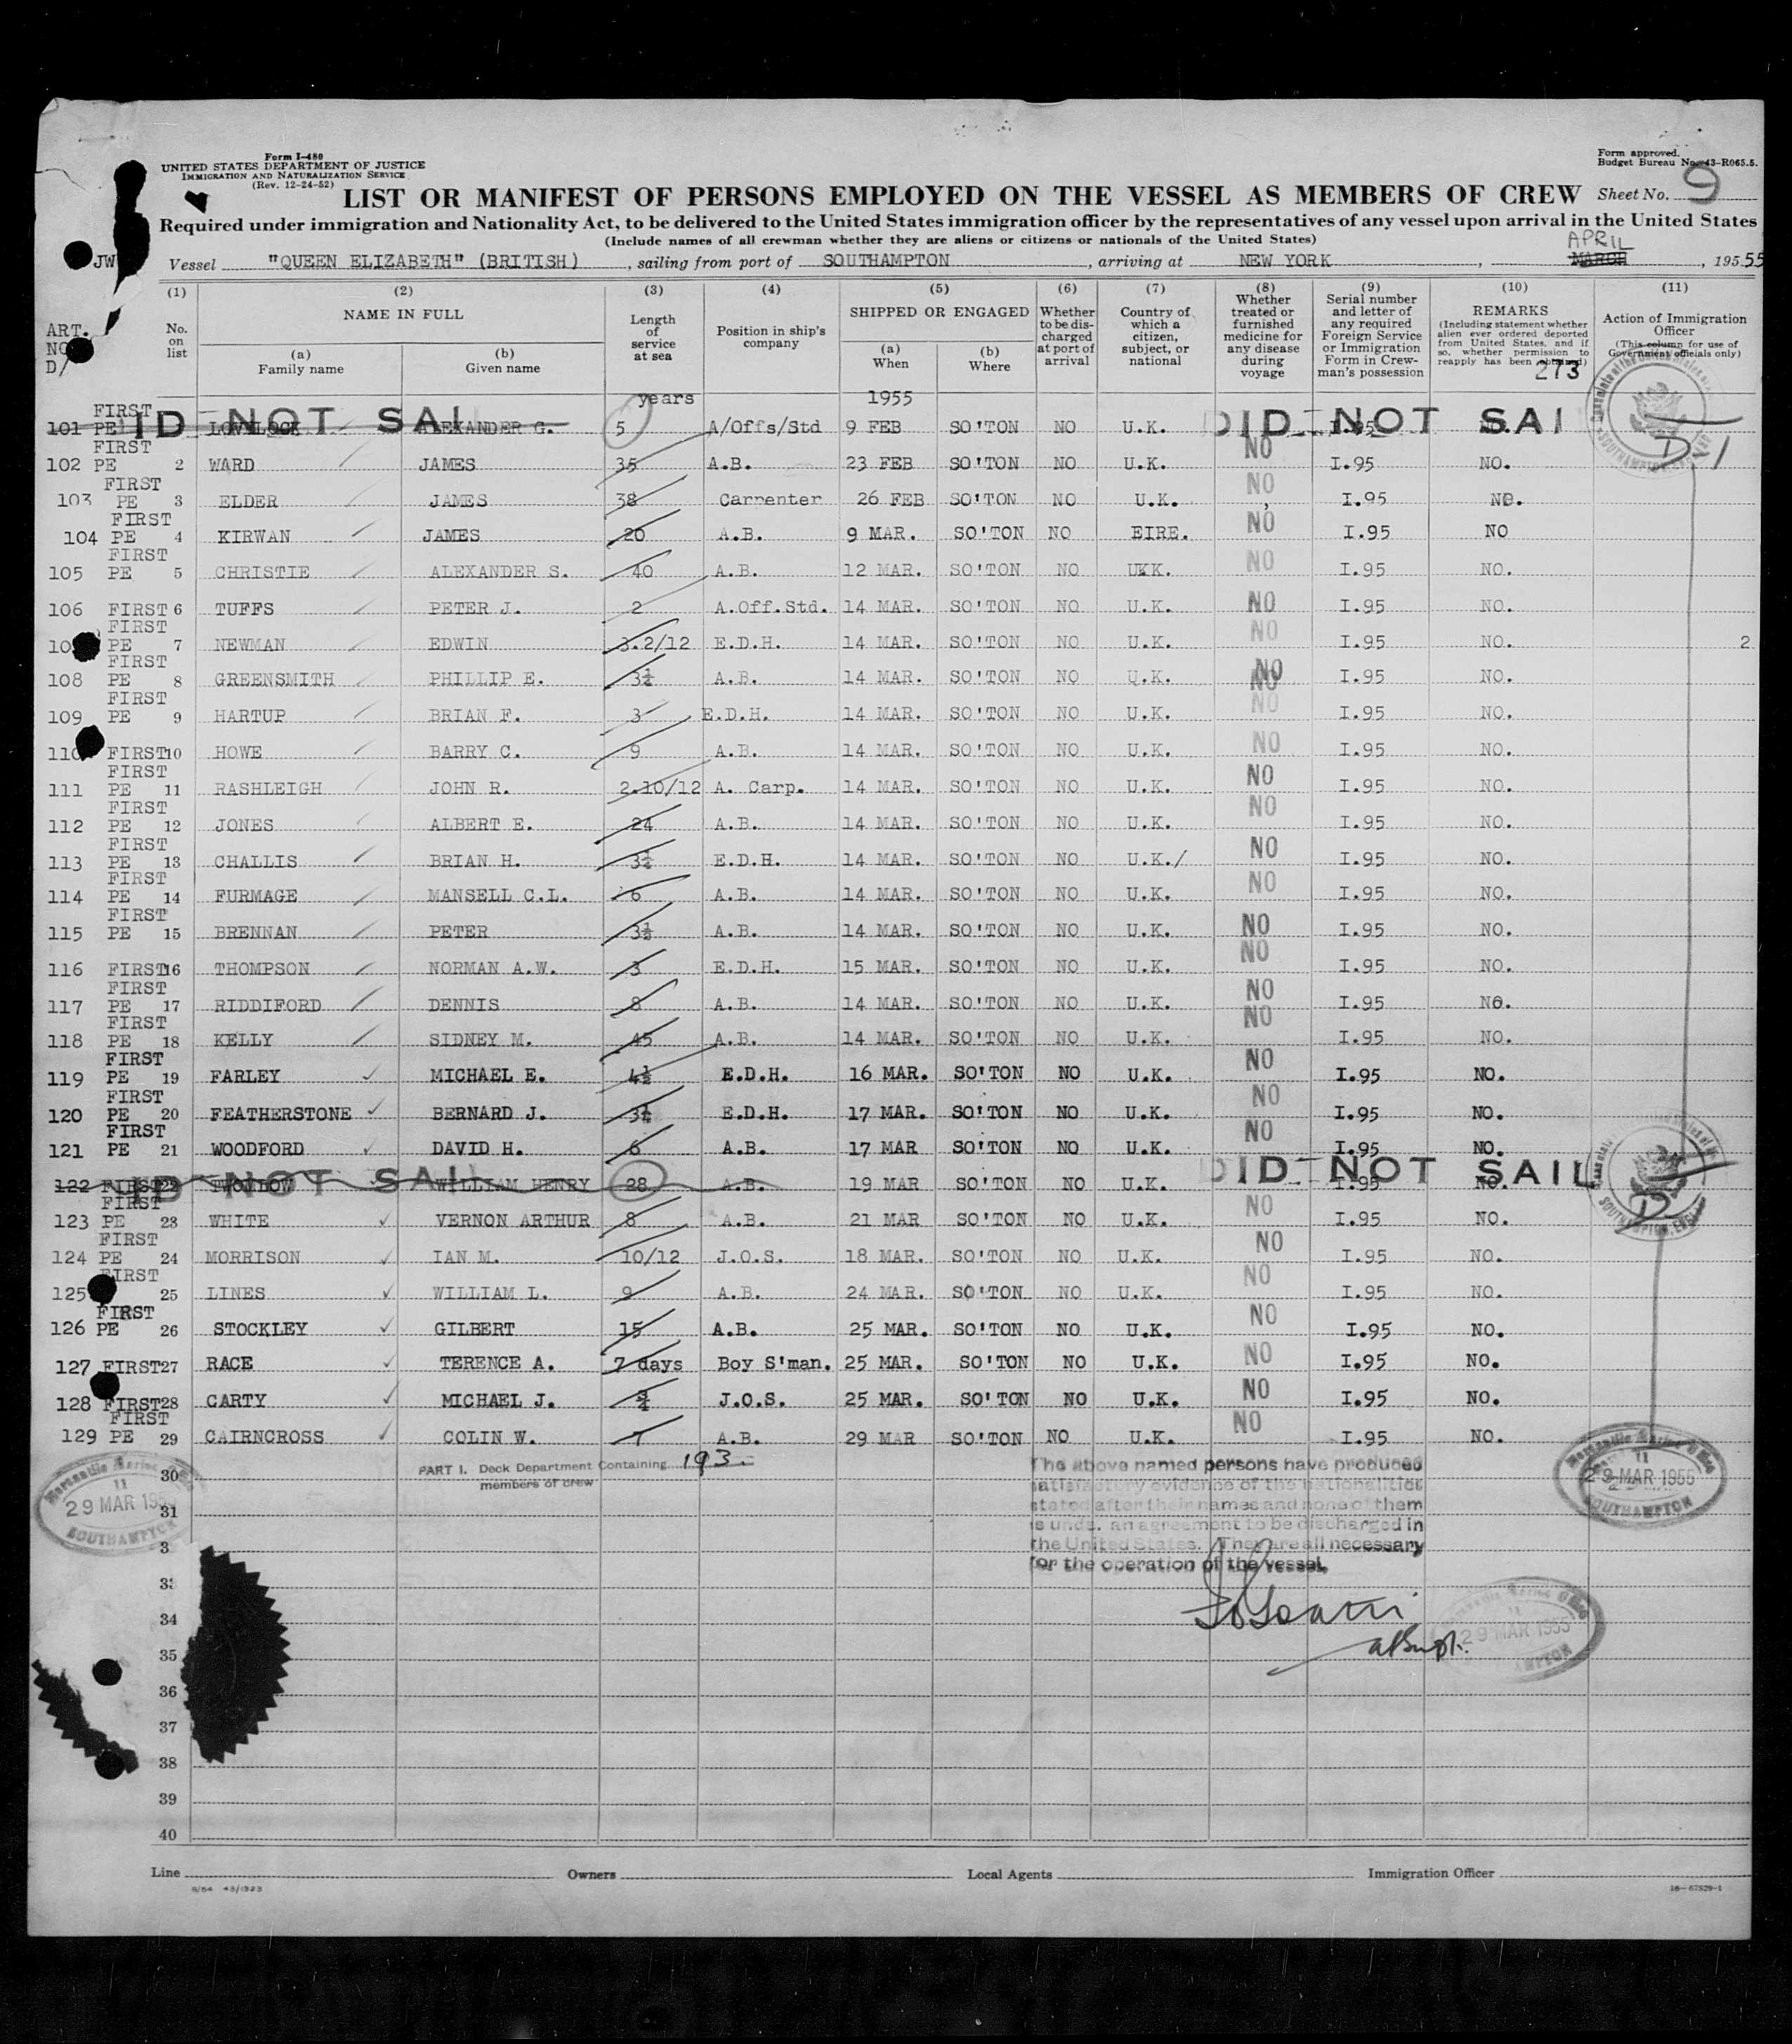 Form I-480
UNITED STATES DEPARTMENT OF JUSTICE
IMMIGRATION AND NATURALIZATION SERVICE
(Rev. 12-24-52)
Form approved.
Budget Bureau No. 43-R065.5.
LIST OR MANIFEST OF PERSONS EMPLOYED ON THE VESSEL AS MEMBERS OF CREW Sheet No. 9
Required under immigration and Nationality Act, to be delivered to the United States immigration officer by the representatives of any vessel upon arrival in the United States
(Include names of all crewman whether they are aliens or citizens or nationals of the United States)
APRIL
JW Vessel "QUEEN ELIZABETH" (BRITISH), sailing from port of SOUTHAMPTON, arriving at NEW YORK, MARCH, 1955 55
(1) (2) (3) (4) (5) (6) (7) (8) (9) (10) (11)
ART. NO. on list NAME IN FULL Length of service at sea Position in ship's company SHIPPED OR ENGAGED Whether to be discharged at port of arrival Country of which a citizen, subject, or national Whether treated or furnished medicine for any disease during voyage Serial number and letter of any required Foreign Service or Immigration Form in Crewman's possession REMARKS (Including statement whether alien ever ordered deported from United States, and if so, whether permission to reapply has been obtained) Action of Immigration Officer (This column for use of Government officials only)
(a) Family name (b) Given name (a) When (b) Where
273
years 1955
FIRST
101 PE DID NOT SAIL LOVELOCK ALEXANDER G. 5 A/Offs/Std 9 FEB SO'TON NO U.K. DID NOT SAI I.95
FIRST
102 PE 2 WARD JAMES 35 A.B. 23 FEB SO'TON NO U.K. NO I.95 NO. D-1
FIRST
103 PE 3 ELDER JAMES 38 Carpenter 26 FEB SO'TON NO U.K. NO I.95 NO.
FIRST
104 PE 4 KIRWAN JAMES 20 A.B. 9 MAR. SO'TON NO EIRE. NO I.95 NO
FIRST
105 PE 5 CHRISTIE ALEXANDER S. 40 A.B. 12 MAR. SO'TON NO UKK. NO I.95 NO.
106 FIRST 6 TUFFS PETER J. 2 A.Off.Std. 14 MAR. SO'TON NO U.K. NO I.95 NO.
FIRST
10 PE 7 NEWMAN EDWIN 3.2/12 E.D.H. 14 MAR. SO'TON NO U.K. NO I.95 NO. 2
FIRST
108 PE 8 GREENSMITH PHILLIP E. 3½ A.B. 14 MAR. SO'TON NO U.K. NO NO I.95 NO.
FIRST
109 PE 9 HARTUP BRIAN F. 3 E.D.H. 14 MAR. SO'TON NO U.K. NO I.95 NO.
110 FIRST10 HOWE BARRY C. 9 A.B. 14 MAR. SO'TON NO U.K. NO I.95 NO.
FIRST
111 PE 11 RASHLEIGH JOHN R. 2.10/12 A. Carp. 14 MAR. SO'TON NO U.K. NO I.95 NO.
FIRST
112 PE 12 JONES ALBERT E. 24 A.B. 14 MAR. SO'TON NO U.K. NO I.95 NO.
FIRST
113 PE 13 CHALLIS BRIAN H. E.D.H. 14 MAR. SO'TON NO U.K./ NO I.95 NO.
FIRST
114 PE 14 FURMAGE MANSELL C.L. 6 A.B. 14 MAR. SO'TON NO U.K. NO I.95 NO.
FIRST
115 PE 15 BRENNAN PETER 3½ A.B. 14 MAR. SO'TON NO U.K. NO I.95 NO.
116 FIRST16 THOMPSON NORMAN A.W. 3 E.D.H. 15 MAR. SO'TON NO U.K. NO I.95 NO.
FIRST
117 PE 17 RIDDIFORD DENNIS 8 A.B. 14 MAR. SO'TON NO U.K. NO I.95 NO.
FIRST
118 PE 18 KELLY SIDNEY M. 45 A.B. 14 MAR. SO'TON NO U.K. NO I.95 NO.
FIRST
119 PE 19 FARLEY MICHAEL E. 4½ E.D.H. 16 MAR. SO'TON NO U.K. NO I.95 NO.
FIRST
120 PE 20 FEATHERSTONE BERNARD J. E.D.H. 17 MAR. SO'TON NO U.K. NO I.95 NO.
FIRST
121 PE 21 WOODFORD DAVID H. 6 A.B. 17 MAR SO'TON NO U.K. NO I.95 NO.
122 FIRST22 DID NOT SAIL WILLIAM HENRY 28 A.B. 19 MAR SO'TON NO U.K. DID NOT SAIL I.95 NO.
FIRST
123 PE 23 WHITE VERNON ARTHUR 8 A.B. 21 MAR SO'TON NO U.K. NO I.95 NO.
FIRST
124 PE 24 MORRISON IAN M. 10/12 J.O.S. 18 MAR. SO'TON NO U.K. NO I.95 NO.
FIRST
125 25 LINES WILLIAM L. 9 A.B. 24 MAR. SO'TON NO U.K. NO I.95 NO.
FIRST
126 PE 26 STOCKLEY GILBERT 15 A.B. 25 MAR. SO'TON NO U.K. NO I.95 NO.
127 FIRST27 RACE TERENCE A. 7 days Boy S'man. 25 MAR. SO'TON NO U.K. NO I.95 NO.
128 FIRST28 CARTY MICHAEL J. ¾ J.O.S. 25 MAR. SO'TON NO U.K. NO I.95 NO.
FIRST
129 PE 29 CAIRNCROSS COLIN W. 7 A.B. 29 MAR SO'TON NO U.K. NO I.95 NO.
30 PART I. Deck Department Containing 193.
members of crew
The above named persons have produced
satisfactory evidence of the nationalities
stated after their names and none of them
is under an agreement to be discharged in
the United States. They are all necessary
for the operation of the vessel.
Mercantile Marine Office
11
29 MAR 1955
SOUTHAMPTON
Mercantile Marine Office
11
29 MAR 1955
SOUTHAMPTON
Mercantile Marine Office
11
29 MAR 1955
31
3
33
34
35
36
37
38
39
40
Line Owners Local Agents Immigration Officer
9/54 43/1323
16-67829-1